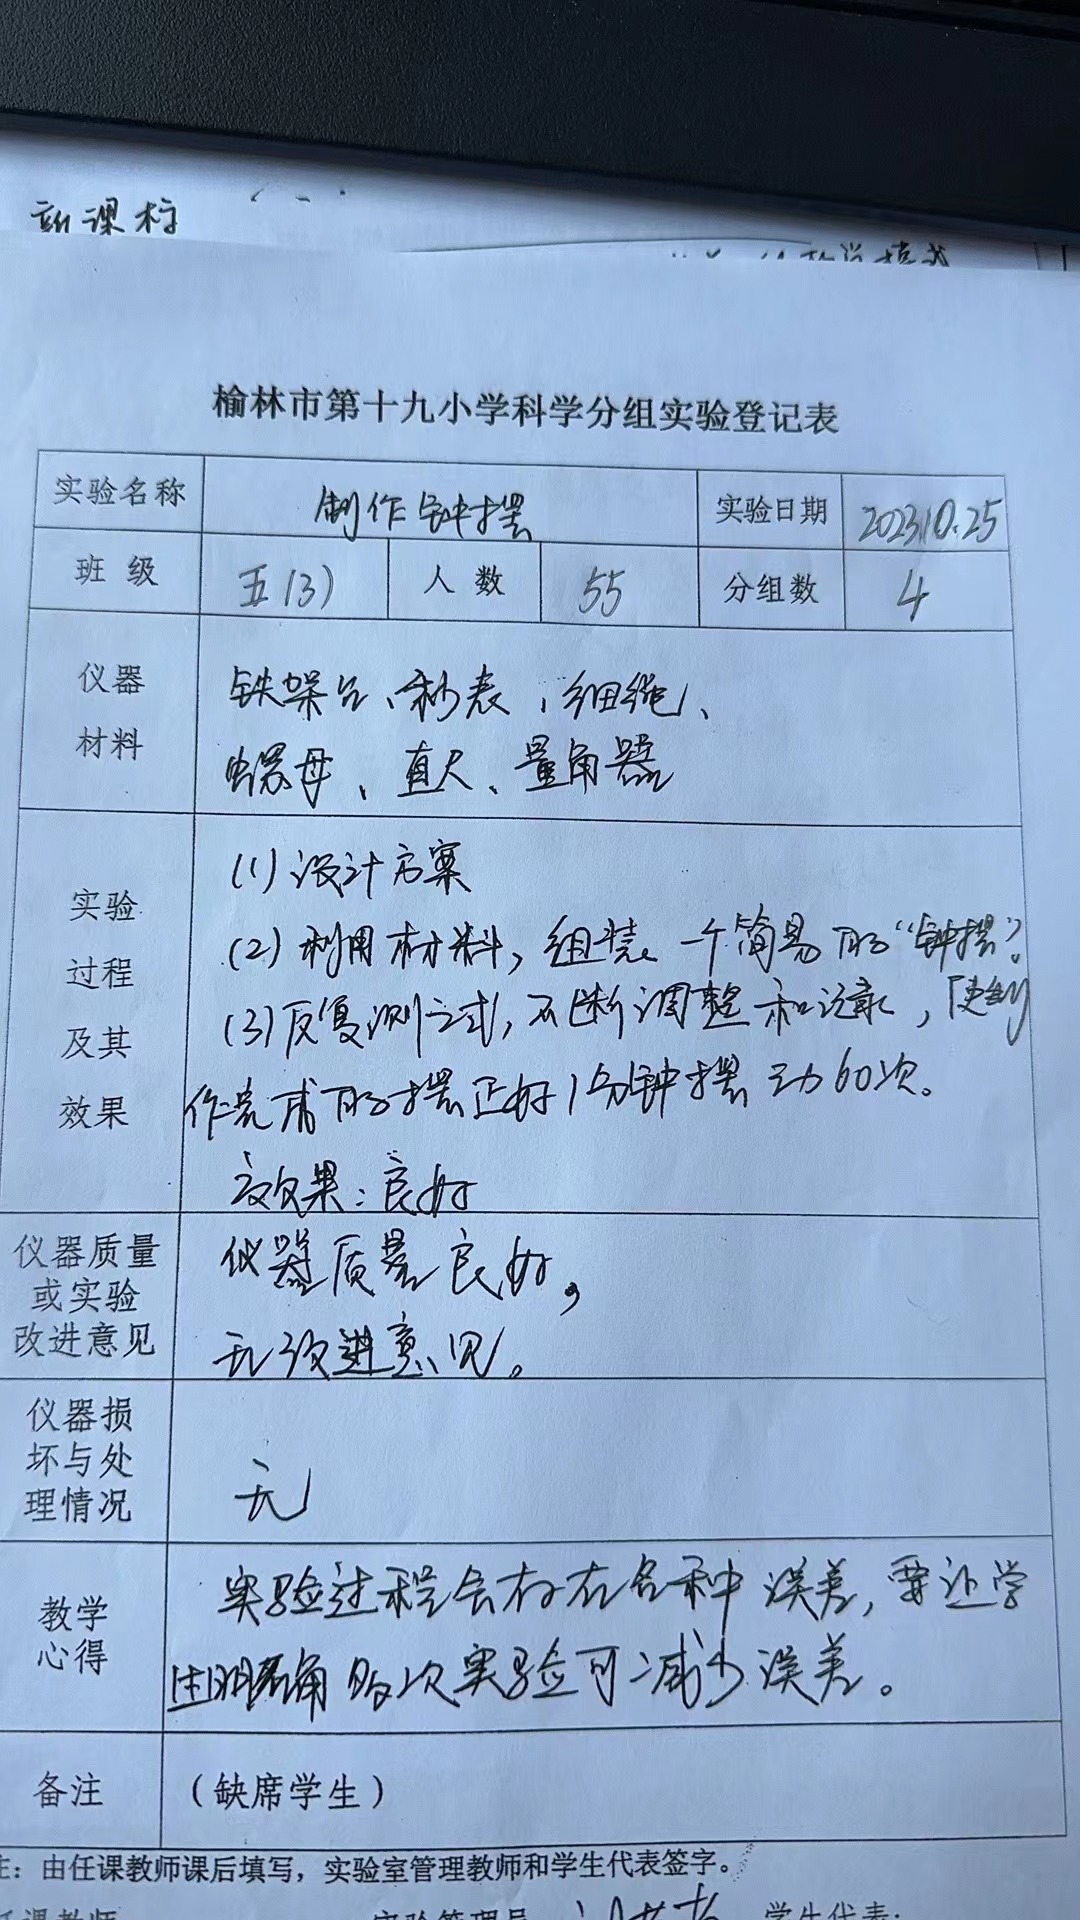 新课标
榆林市第十九小学科学分组实验登记表
实验名称 制作钟摆 实验日期 2023.10.25
班级 五(3) 人数 55 分组数 4
仪器材料
铁架台、秒表、细绳、
螺母、直尺、量角器
实验过程及其效果
(1)设计方案
(2)利用材料,组装一个简易的“钟摆”。
(3)反复测试,不断调整和记录,使制
作完成的摆正好1分钟摆动60次。
效果:良好
仪器质量或实验改进意见
仪器质量良好,
无改进意见。
仪器损坏与处理情况
无
教学心得
实验过程会存在各种误差,要让学
生明确多次实验可减少误差。
备注 (缺席学生)
注:由任课教师课后填写,实验室管理教师和学生代表签字。
任课教师 实验管理员 学生代表: